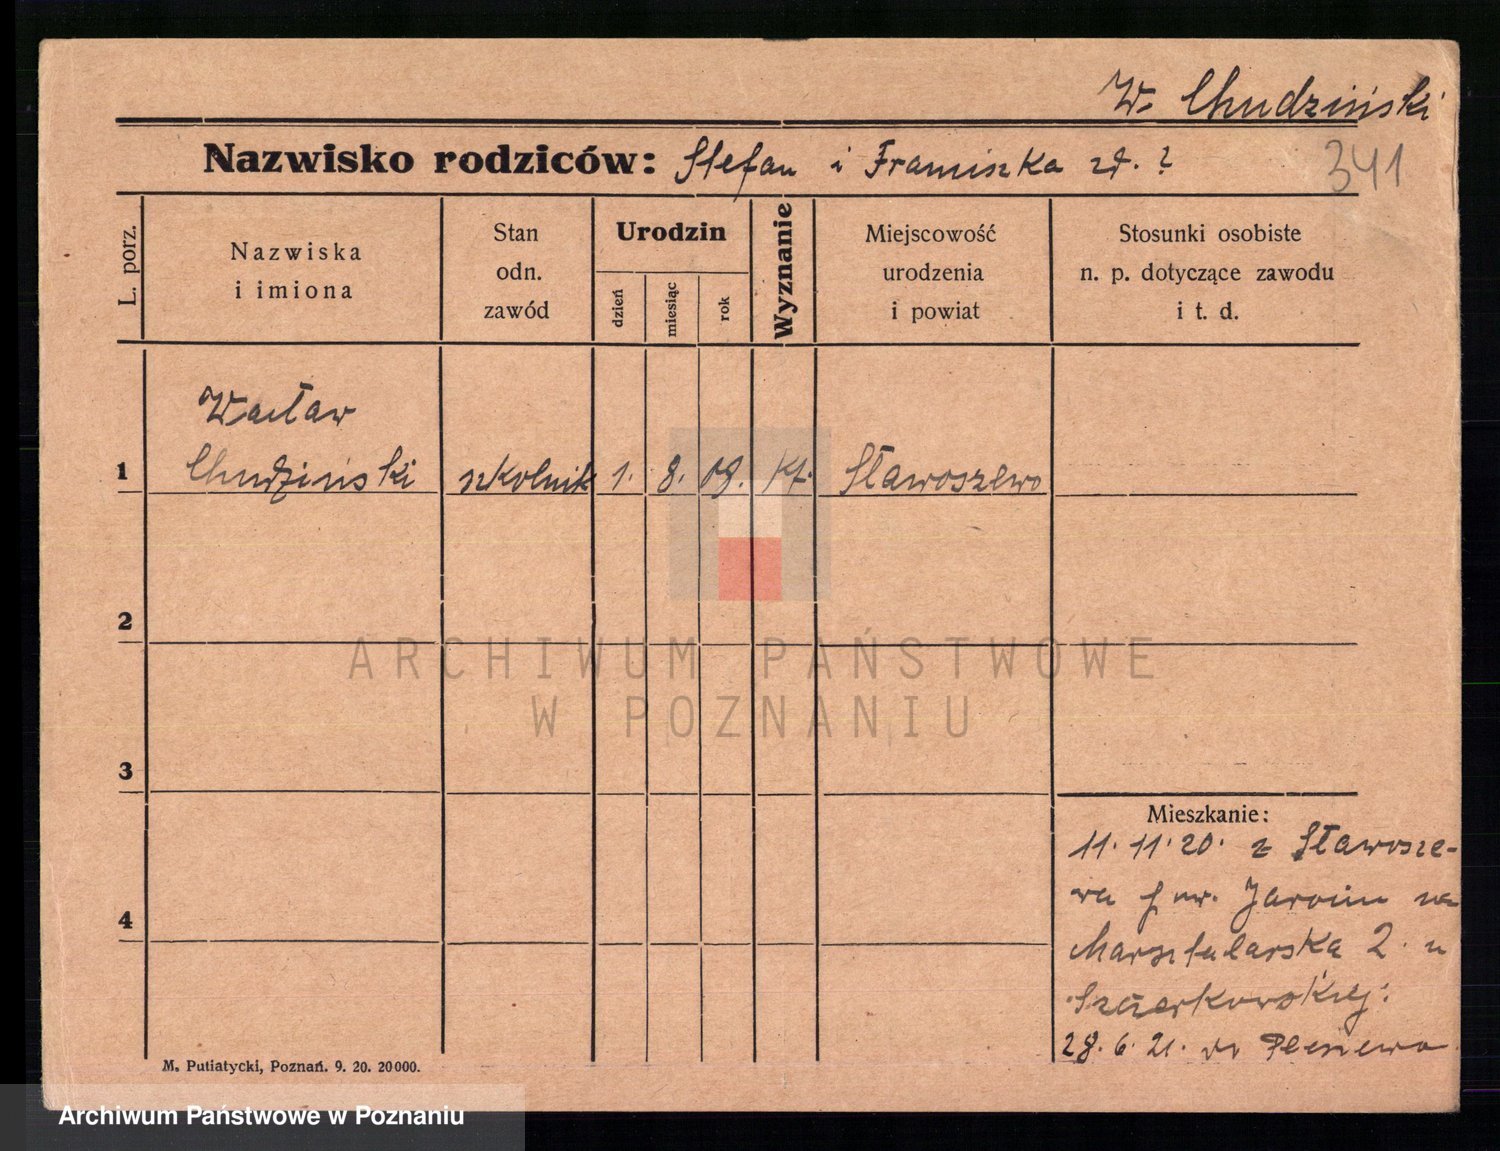 W. Chudziński
Nazwisko rodziców: Stefan i Franciszka zd. ?
341
L. porz.
Nazwiska
i imiona
Stan
odn.
zawód
Urodzin
dzień
miesiąc
rok
Wyznanie
Miejscowość
urodzenia
i powiat
Stosunki osobiste
n. p. dotyczące zawodu
i t. d.
Wacław
1 Chudziński szkolnik 1. 8. 08. kt. Sławoszewo
2
3
4
Mieszkanie:
11. 11. 20. z Sławosze-
wa Jarocin na
Marsztalarska 2. u
28. 6. 21. do Pleszewa
M. Putiatycki, Poznań. 9. 20. 20000.
ARCHIWUM PAŃSTWOWE
W POZNANIU
Archiwum Państwowe w Poznaniu